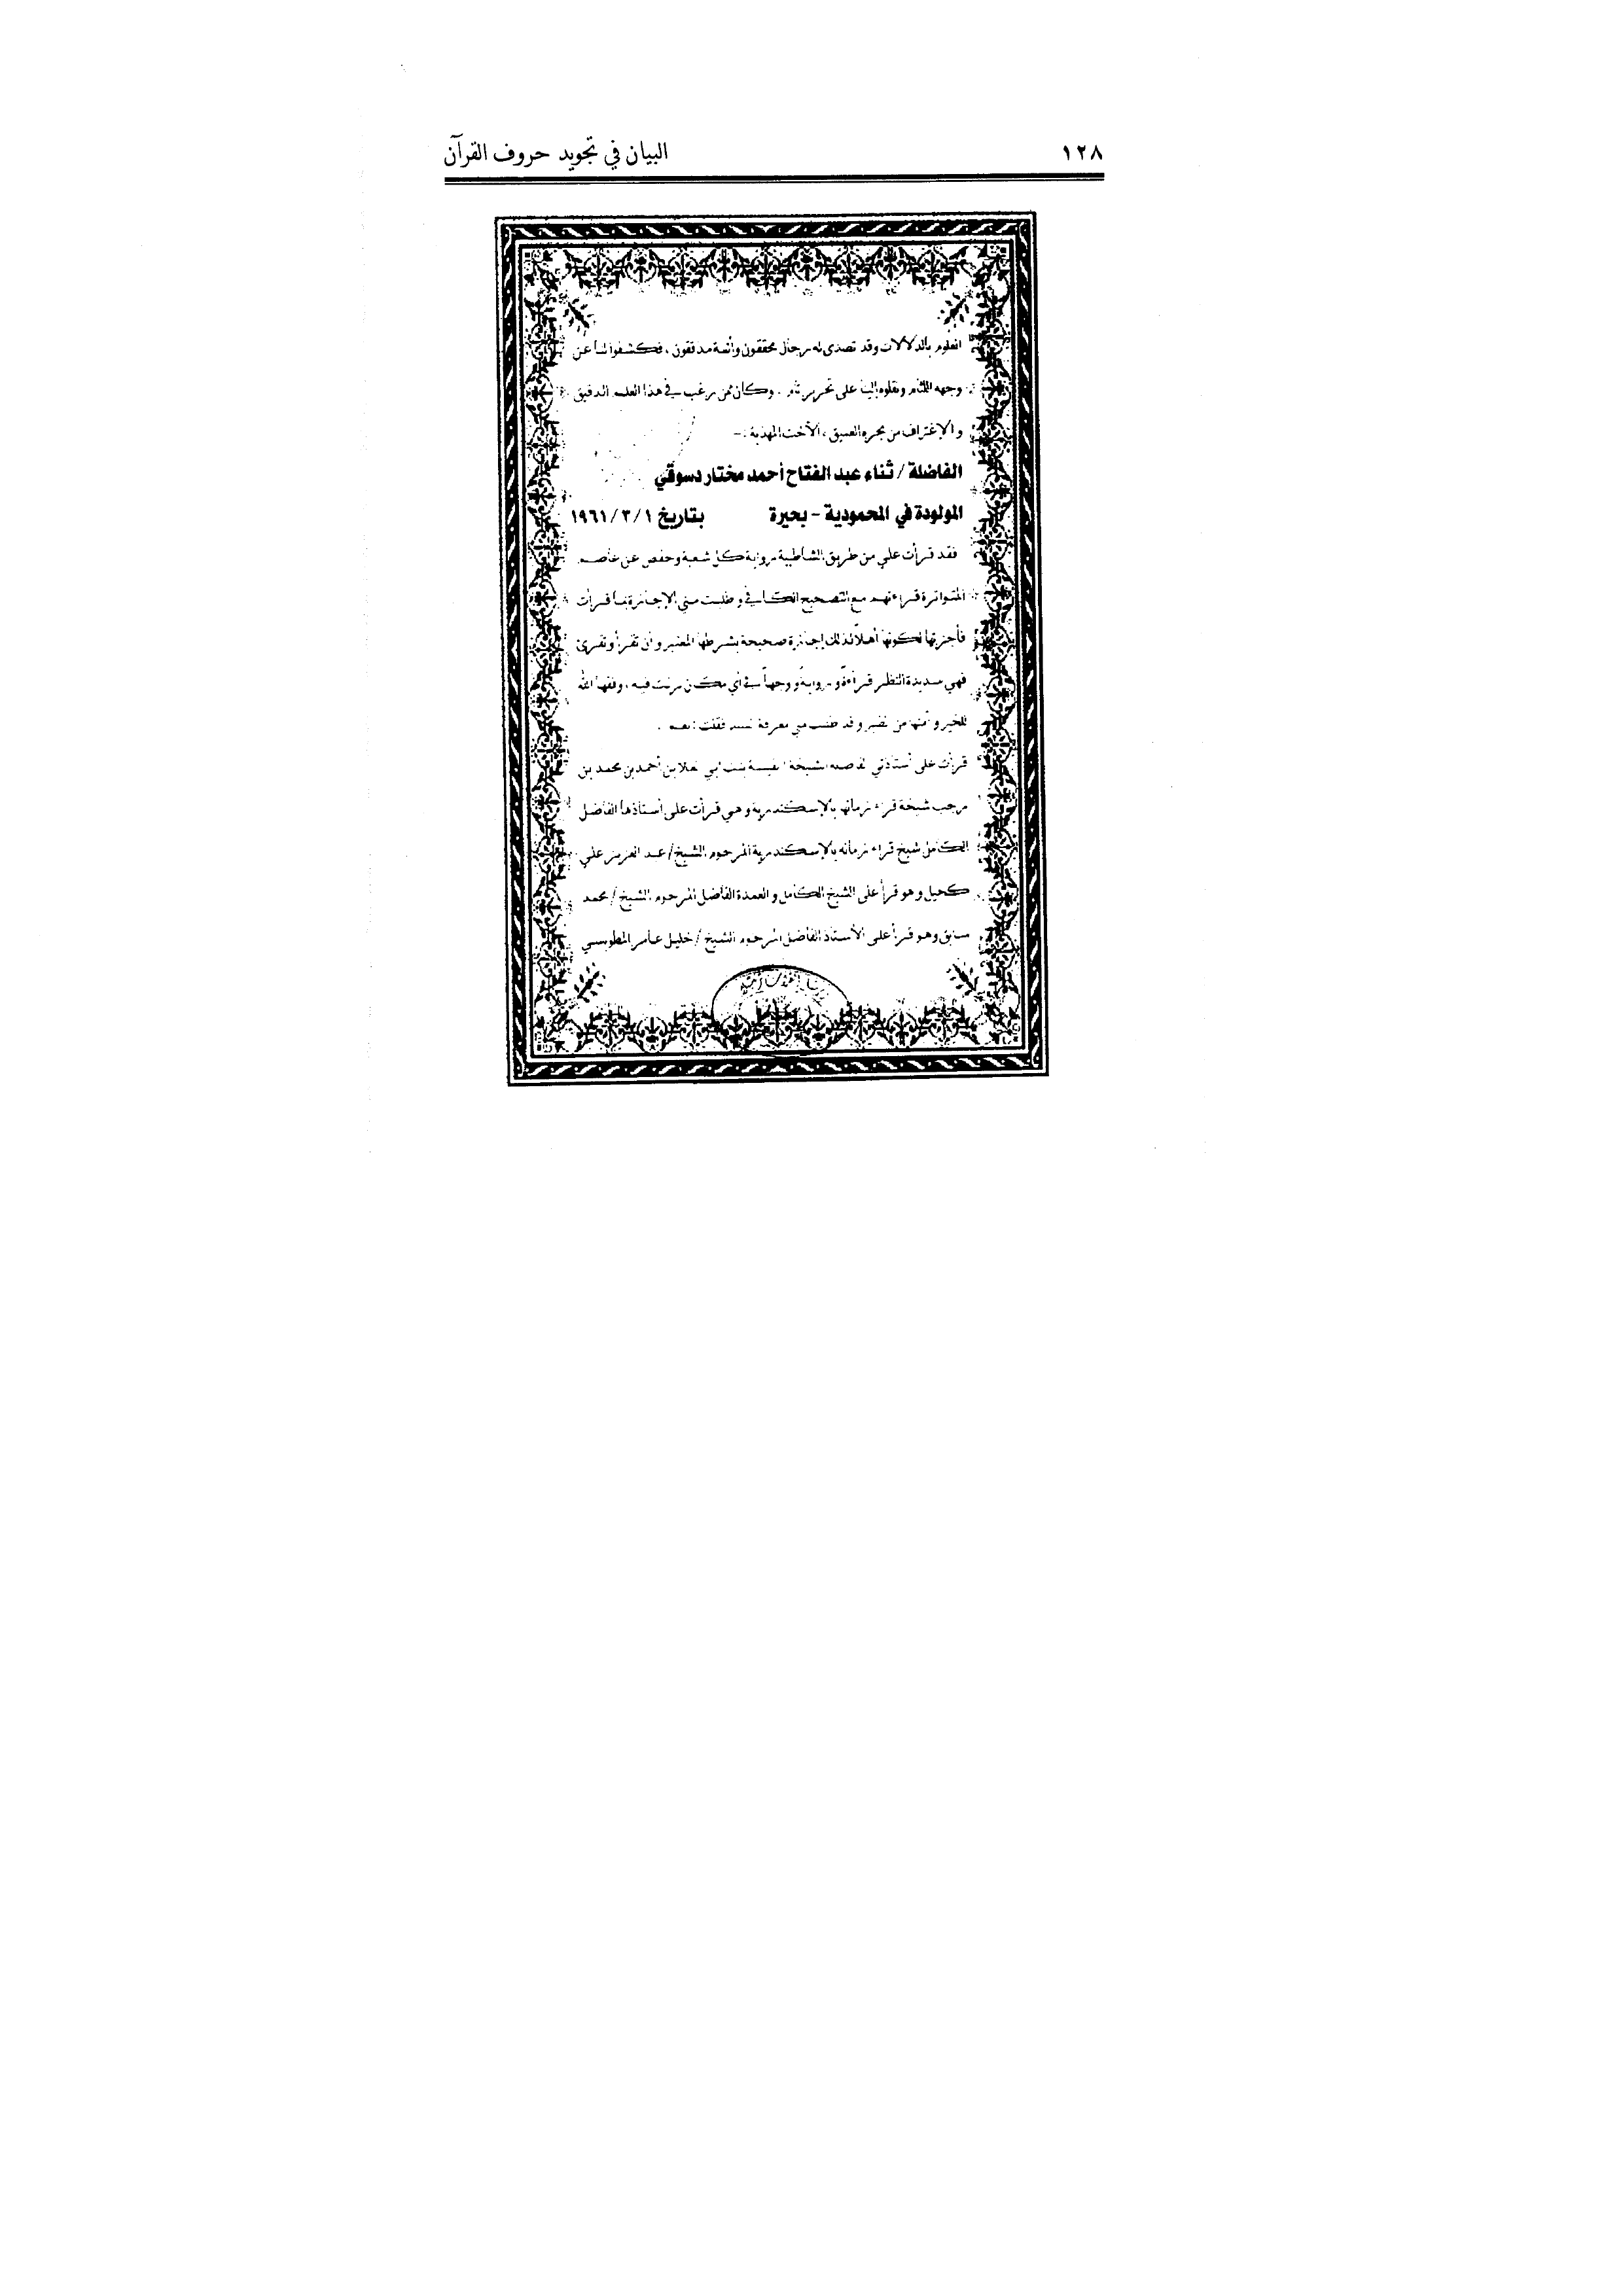 ١٢٨ البيان في تجويد حروف القرآن
العلوم بالدلالات وقد تصدى له رجال محققون وأئمة مدققون ، فكشفوا لنا عن
وجهه اللثام ونقلوه إلينا على تحرير تام . وكان ممن رغب في هذا العلم الدقيق
والإغتراف من بحره العميق ، الأخت المهذبة :-
الفاضلة / ثناء عبد الفتاح أحمد مختار دسوقي
المولودة في المحمودية - بحيرة بتاريخ ١٩٦١/٣/١
فقد قرأت علي من طريق الشاطبية برواية كل شعبة وحفص عن عاصم
المتواترة قراءتهم مع التصحيح الكافي وطلبت مني الإجازة بما قرأت
فأجزتها لكونها أهلاً لذلك إجازة صحيحة بشرطها المعتبر وأن تقرأ وتقرئ
فهي سديدة النظر قراءةً ورواية ووجهاً في أي مكان نزلت فيه ، وفقها الله
للخير و من وقد طلبت مني معرفة السند فقلت : نعم .
قرأت على أستاذتي الفاضلة الشيخة نفيسة بنت أبي العلا بن أحمد بن محمد بن
رجب شيخة قراء زمانها بالإسكندرية وهي قرأت على أستاذها الفاضل
الكامل شيخ قراء زمانه بالإسكندرية المرحوم الشيخ / عبد العزيز علي
كحيل وهو قرأ على الشيخ الكامل والعمدة الفاضل المرحوم الشيخ / محمد
سابق وهو قرأ على الأستاذ الفاضل المرحوم الشيخ / خليل عامر المطوبسي